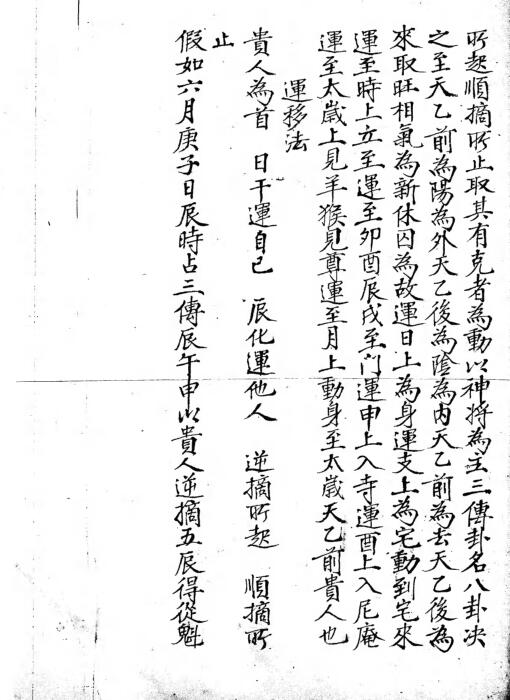 所起順摘所止取其有克者為動以神將為主三傳卦名八卦决
之至天乙前為陽為外天乙後為陰為內天乙前為去天乙後為
來取旺相氣為新休囚為故運日上為身運支上為宅動到宅來
運至時上立至運至卯酉辰戌至门運申上入寺運酉上入尼庵
運至太歲上見羊猴見尊運至月上動身至太歲天乙前貴人也
運移法
貴人為首 日干運自己 辰化運他人 逆摘所起 順摘所
止
假如六月庚子日辰時占三傳辰午申以貴人逆摘五辰得從魁